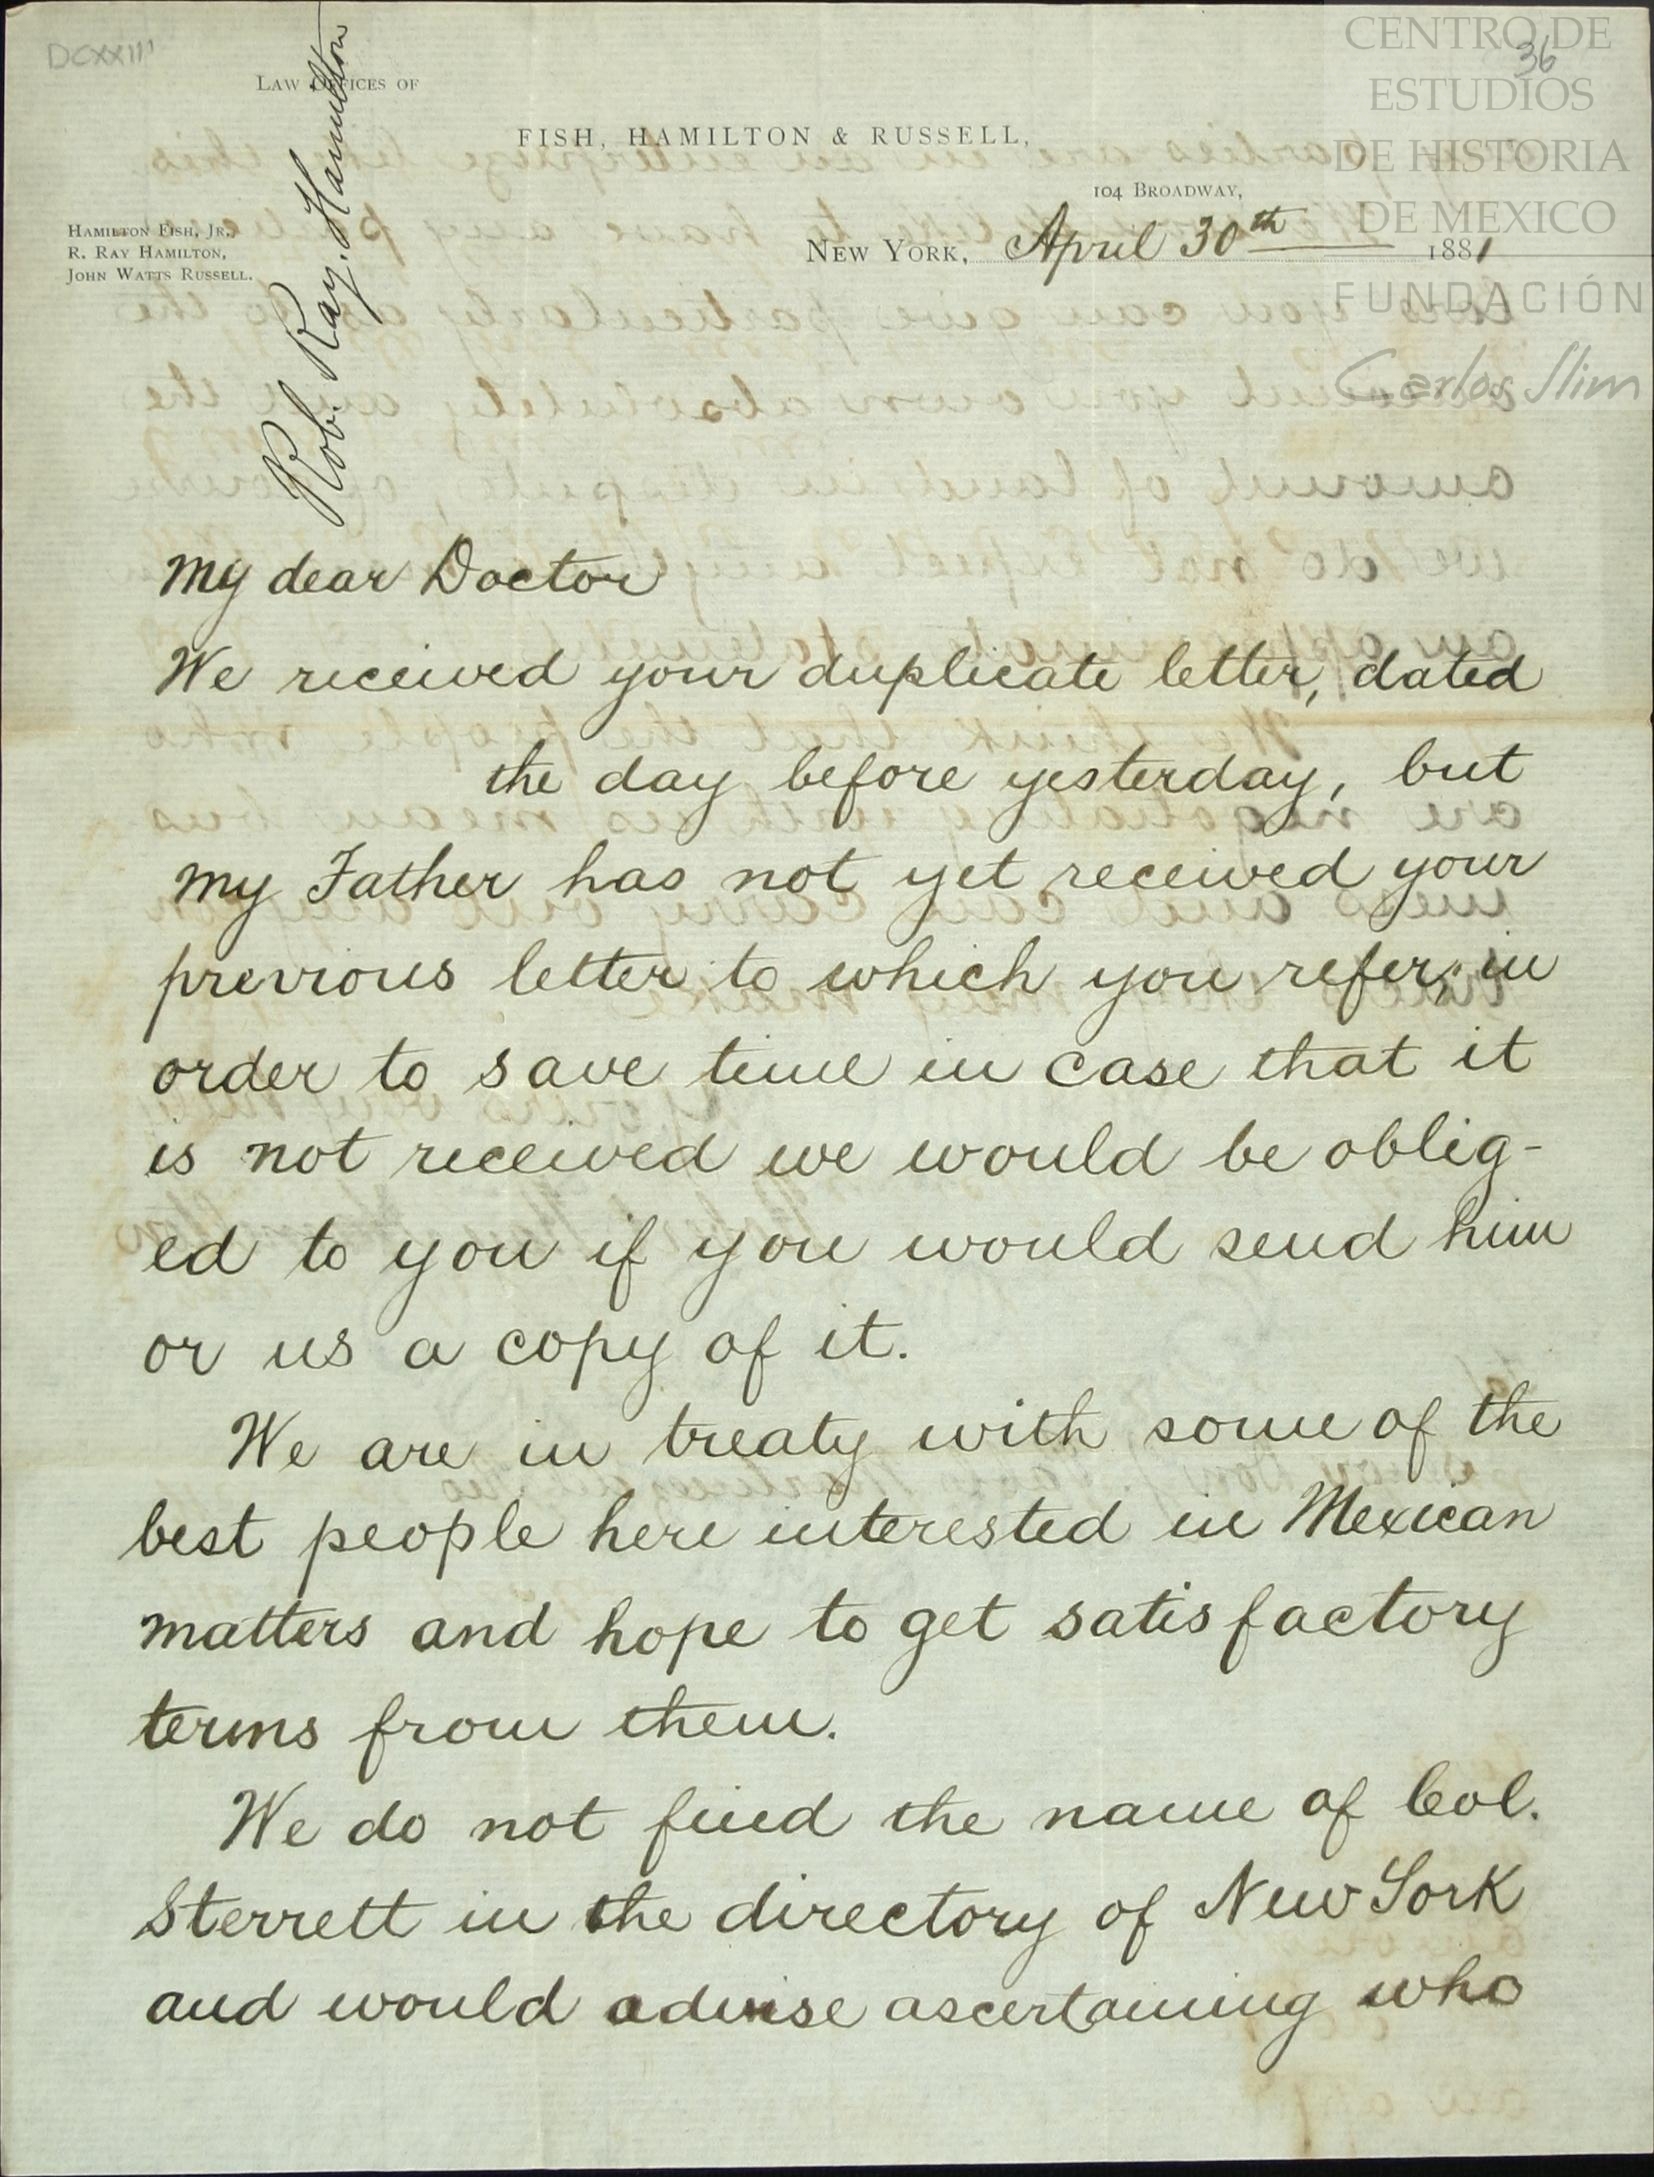 DCXXIII
36
CENTRO DE
ESTUDIOS
DE HISTORIA
DE MEXICO
FUNDACIÓN
Carlos Slim
LAW OFFICES OF
FISH, HAMILTON & RUSSELL,
104 BROADWAY,
HAMILTON FISH, JR.,
R. RAY HAMILTON,
JOHN WATTS RUSSELL.
NEW YORK, April 30th 1881
Rob. Ray. Hamilton
My dear Doctor
We received your duplicate letter, dated
the day before yesterday, but
my Father has not yet received your
previous letter to which you refer, in
order to save time in case that it
is not received we would be oblig-
ed to you if you would send him
or us a copy of it.
We are in treaty with some of the
best people here interested in Mexican
matters and hope to get satisfactory
terms from them.
We do not find the name of Col.
Sterrett in the directory of New York
and would advise ascertaining who